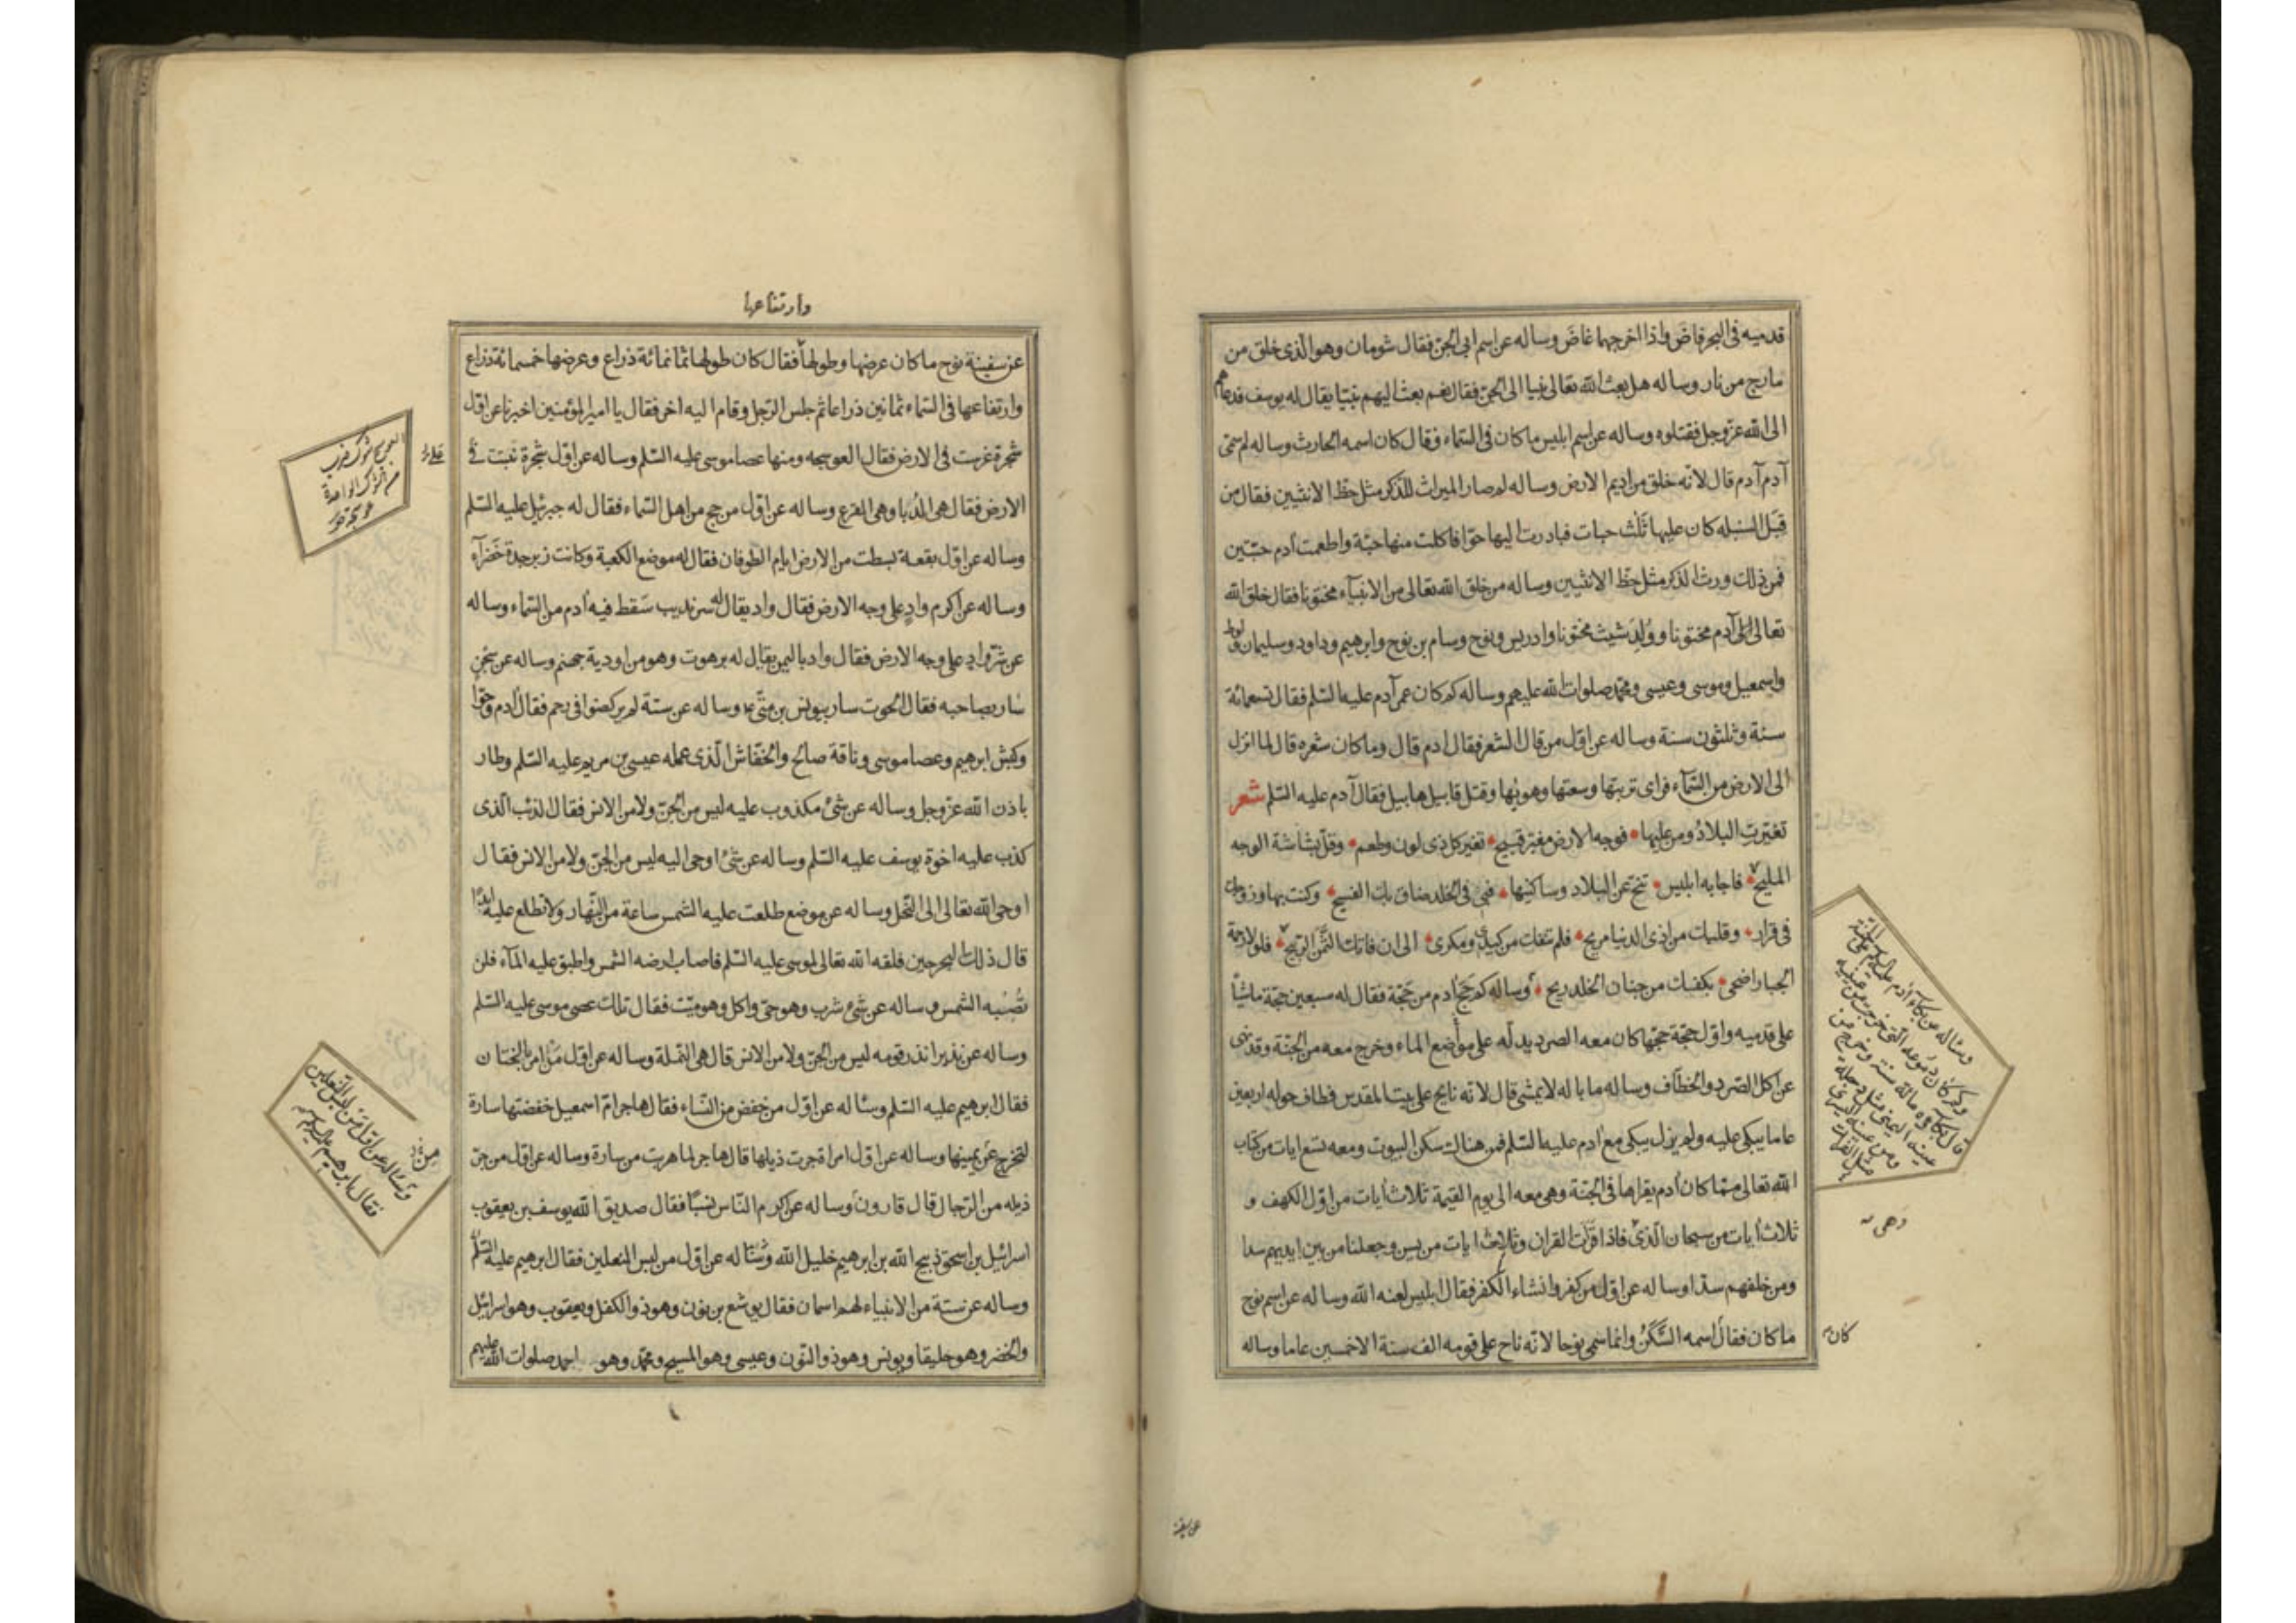 قدميه فى البحر فاضَ واذا اخرجهما غاضَ وساله عن اسم ابى الجن فقال شومان وهو الذى خلق من
مارج من نار وساله هل بعث الله تعالى نبيا الى الجن فقال نعم بعث اليهم نبيّا يقال له يوسف فدعاهم
الى الله عزوجل فقتلوه وساله عن اسم ابليس ما كان فى السماء فقال كان اسمه الحارث وساله لم سمّى
آدم آدم قال لانه خلق من اديم الارض وساله لم صار الميراث للذكر مثل حظ الانثيين فقال من
قِبَل السنبله كان عليها ثلث حبات فبادرت اليها حوّا فاكلت منها حبّة واطعمت آدم حبّتين
فمن ذلك ورث الذكر مثل حظ الانثيين وساله من خلق الله تعالى من الانبيآء مختونا فقال خلق الله
تعالى آدم مختونا ووُلِدَ شيث مختونا وادريس ونوح وسام بن نوح وابرهيم وداود وسليمان ولوط
واسمعيل وموسى وعيسى ومحمّد صلوات الله عليهم وساله كم كان عمر آدم عليه السّلم فقال تسعمائة
سنة وثلثون سنة وساله عن اوّل من قال الشعر فقال ادم قال وما كان شعره قال لما انزل
الى الارض من السّمآء فراى تربتها وسعتها وهوٰيها وقتل قابيل هابيل فقال آدم عليه السّلم شعر
تغيّرتِ البلادُ ومن عليها فوجه الارض مغبرّ قبيح تغير كل ذى لون وطعم وقلّ بشاشة الوجه
المليح فاجابه ابليس تنحّ عن البلاد وساكنيها فبى فى الخلد ضاق بك الفسيح وكنت بها وزوجك
فى قرار وقلبك من اذى الدنيا مريح فلم تنفك من كيدى ومكرى الى ان فاتك الثّمن الرّبيح فلولا رحمة
الجبار اضحى بكفك من جنان الخلد ريح وساله كم حَجّ آدم من حَجّة فقال له سبعين حجّة ماشيًا
على قدميه واوّل حجّة حجّها كان معه الصرد يدلّه على مواضع الماء وخرج معه من الجنّة وقد نهى
عن اكل الصّرد والخطّاف وساله ما باله لا يمشى قال لانّه ناح على بيت المقدس فطاف حوله اربعين
عاما يبكى عليه ولم يزل يبكى مع آدم عليه السّلم فمن هناك سكن البيوت ومعه تسع ايات من كتاب
الله تعالى ممّا كان آدم يقراها فى الجنّة وهى معه الى يوم القيمة ثلاث ايات من اوّل الكهف و
ثلاث ايات من سبحان الّذى فاذا قرأت القران وثلاث ايات من يس وجعلنا من بين ايديهم سدا
ومن خلفهم سدّا وساله عن اوّل من كفر وانشاء الكفر فقال ابليس لعنه الله وساله عن اسم نوح
ما كان فقال اسمه السَّكَنُ وانما سمى نوحا لانّه ناح على قومه الف سنة الا خمسين عاما وساله
وساله عن بكاء آدم على الجنة
وكم كان دموعه التى خرجت من عينيه
قال بكى مائة سنة وخرج من
عينه اليمنى مثل دجلة
ومن عينه اليسرى
مثل الفرات
وهى
كان
عن سفينة
وارتفاعها
عن سفينة نوح ما كان عرضها وطولها فقال كان طولها ثمانمائة ذراع وعرضها خمسمائة ذراع
وارتفاعها فى السّماء ثمانين ذراعا ثم جلس الرّجل وقام اليه اخر فقال يا امير المؤمنين اخبرنا عن اوّل
شجرة غرست فى الارض فقال العوسجه ومنها عصا موسى عليه السّلم وساله عن اوّل شجرة نبتت فى
الارض فقال هى الدُّبا وهى القرع وساله عن اوّل من حج من اهل السّماء فقال له جبرئيل عليه السّلم
وساله عن اوّل بقعة بسطت من الارض ايام الطوفان فقال له موضع الكعبة وكانت زبرجدة خَضرآء
وساله عن اكرم وادٍ على وجه الارض فقال واد يقال له سرنديب سَقط فيه آدم من السّماء وساله
عن شرّ وادٍ على وجه الارض فقال واد باليمن يقال له برهوت وهو من اودية جهنم وساله عن سجن
سار بصاحبه فقال الحوت سار بيونس بن متّى وساله عن ستة لم يركضوا فى رحم فقال آدم وحوّا
وكبش ابرهيم وعصا موسى وناقة صالح والخفّاش الّذى عمله عيسى بن مريم عليه السّلم وطار
باذن الله عزّوجل وساله عن شئ مكذوب عليه ليس من الجنّ ولا من الانس فقال الذئب الّذى
كذب عليه اخوة يوسف عليه السّلم وساله عن شئ اوحى اليه ليس من الجنّ ولا من الانس فقال
اوحى الله تعالى الى النّحل وساله عن موضع طلعت عليه الشمس ساعة من النّهار ولا تطلع عليه ابدًا
قال ذلك البحر حين فلقه الله تعالى لموسى عليه السّلم فاصاب ارضه الشمس واطبق عليه المآء فلن
تُصبْبه الشمس وساله عن شئ شرب وهو حىّ واكل وهو ميّت فقال تلك عصى موسى عليه السّلم
وساله عن نذير انذر قومه ليس من الجنّ ولا من الانس قال هى النّملة وساله عن اوّل من امر بالختان
فقال ابرهيم عليه السّلم وساله عن اوّل من خفض من النّساء فقال هاجر امّ اسمعيل خفضتها سارة
لتخرج عن يمينها وساله عن اوّل امراة جرت ذيلها قال هاجر لما هربت من سارة وساله عن اوّل من جرّ
ذيله من الرّجال قال قارون وساله عن اكرم النّاس نسبًا فقال صديق الله يوسف بن يعقوب
اسرائيل بن اسحق ذبيح الله بن ابرهيم خليل الله وساله عن اوّل من لبس النعلين فقال ابرهيم عليه السّلم
وساله عن ستة من الانبياء لهم اسمان فقال يوشع بن نون وهو ذو الكفل ويعقوب وهو اسرائيل
والخضر وهو حليقا ويونس وهو ذو النّون وعيسى وهو المسيح ومحمّد وهو احمد صلوات الله عليهم
وساله عن اوّل من لبس النعلين
فقال ابرهيم عليه السلام